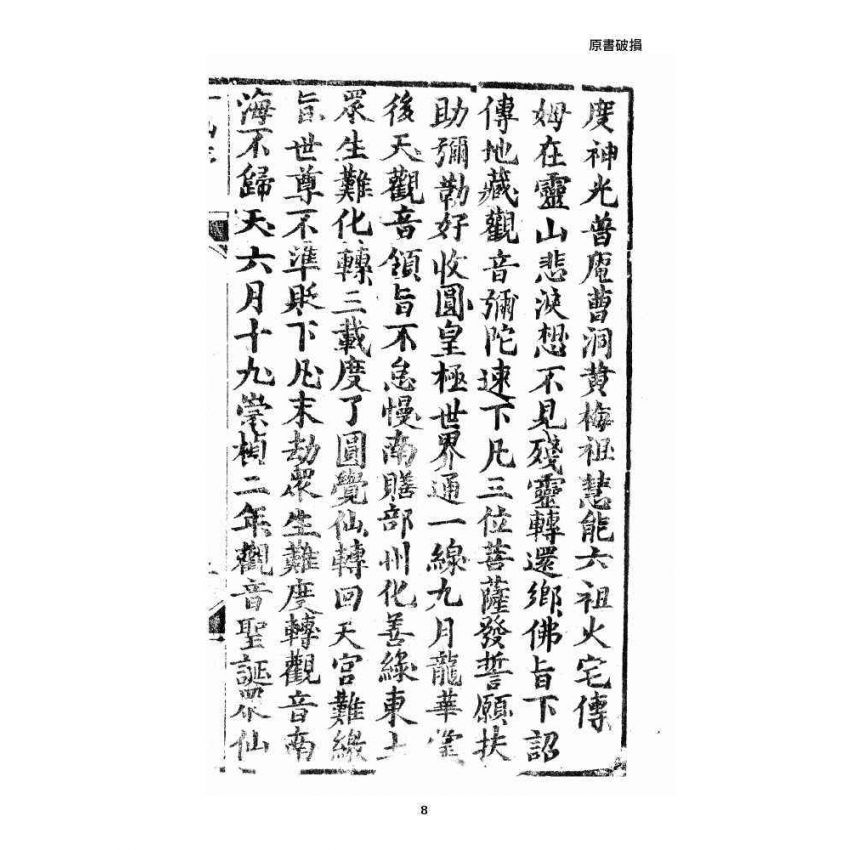 原書破損
度神光普庵曹洞黃梅祖慧能六祖火宅傳
姆在靈山悲淚想不見殘靈轉還鄉佛旨下詔
傳地藏觀音彌陀速下凡三位菩薩發誓願扶
助彌勒好收圓皇極世界通一線九月龍華會
後天觀音領旨不怠慢南贍部州化善緣東土
眾生難化轉三載度了圓覺仙轉回天宮難繳
旨世尊不準貶下凡末劫眾生難度轉觀音南
海不歸天六月十九崇禎二年觀音聖誕眾仙
8